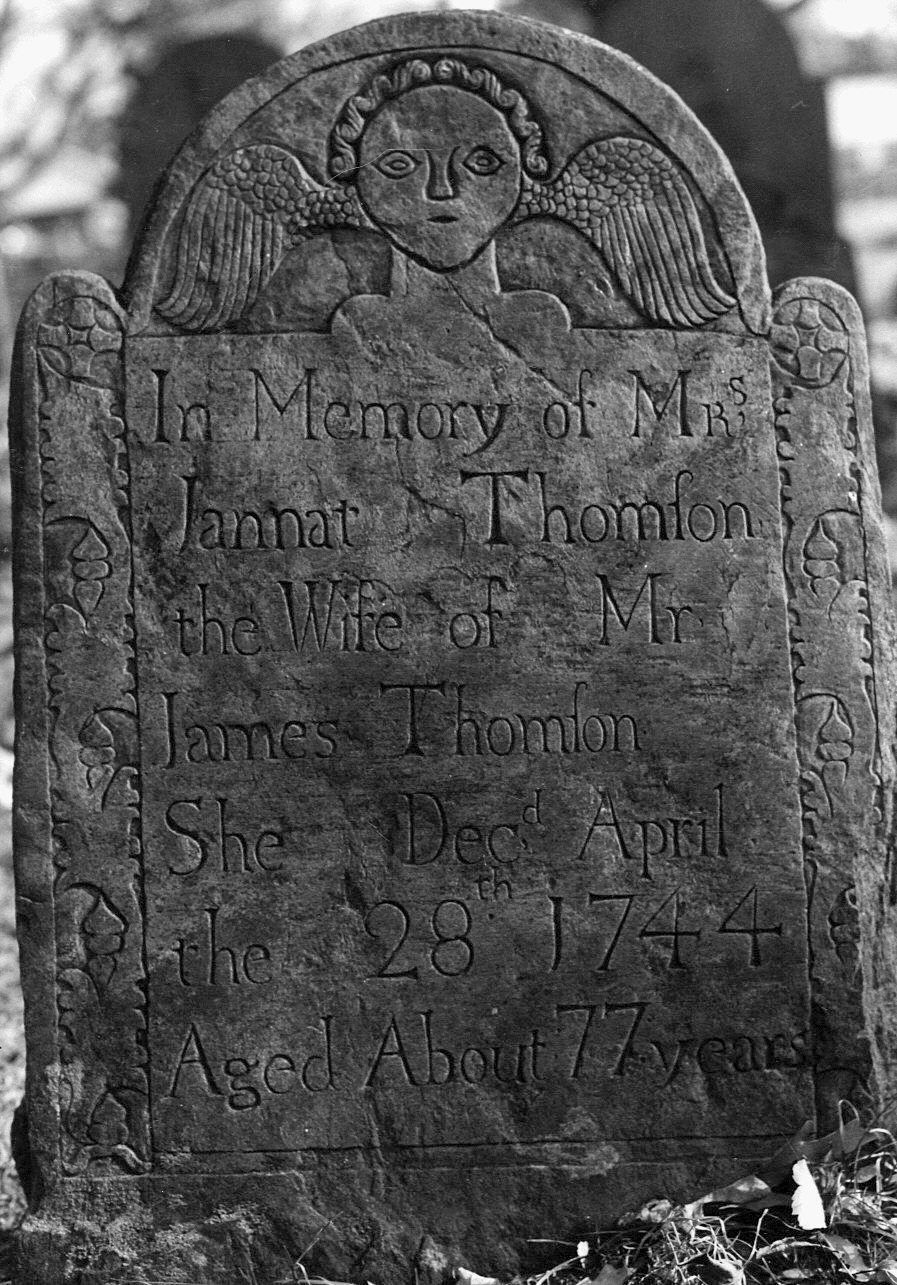 In Memory of Mʳˢ
Jannat Thomſon
the Wife of Mr
James Thomſon
She Decᵈ April
the 28ᵗʰ 1744
Aged About 77 years